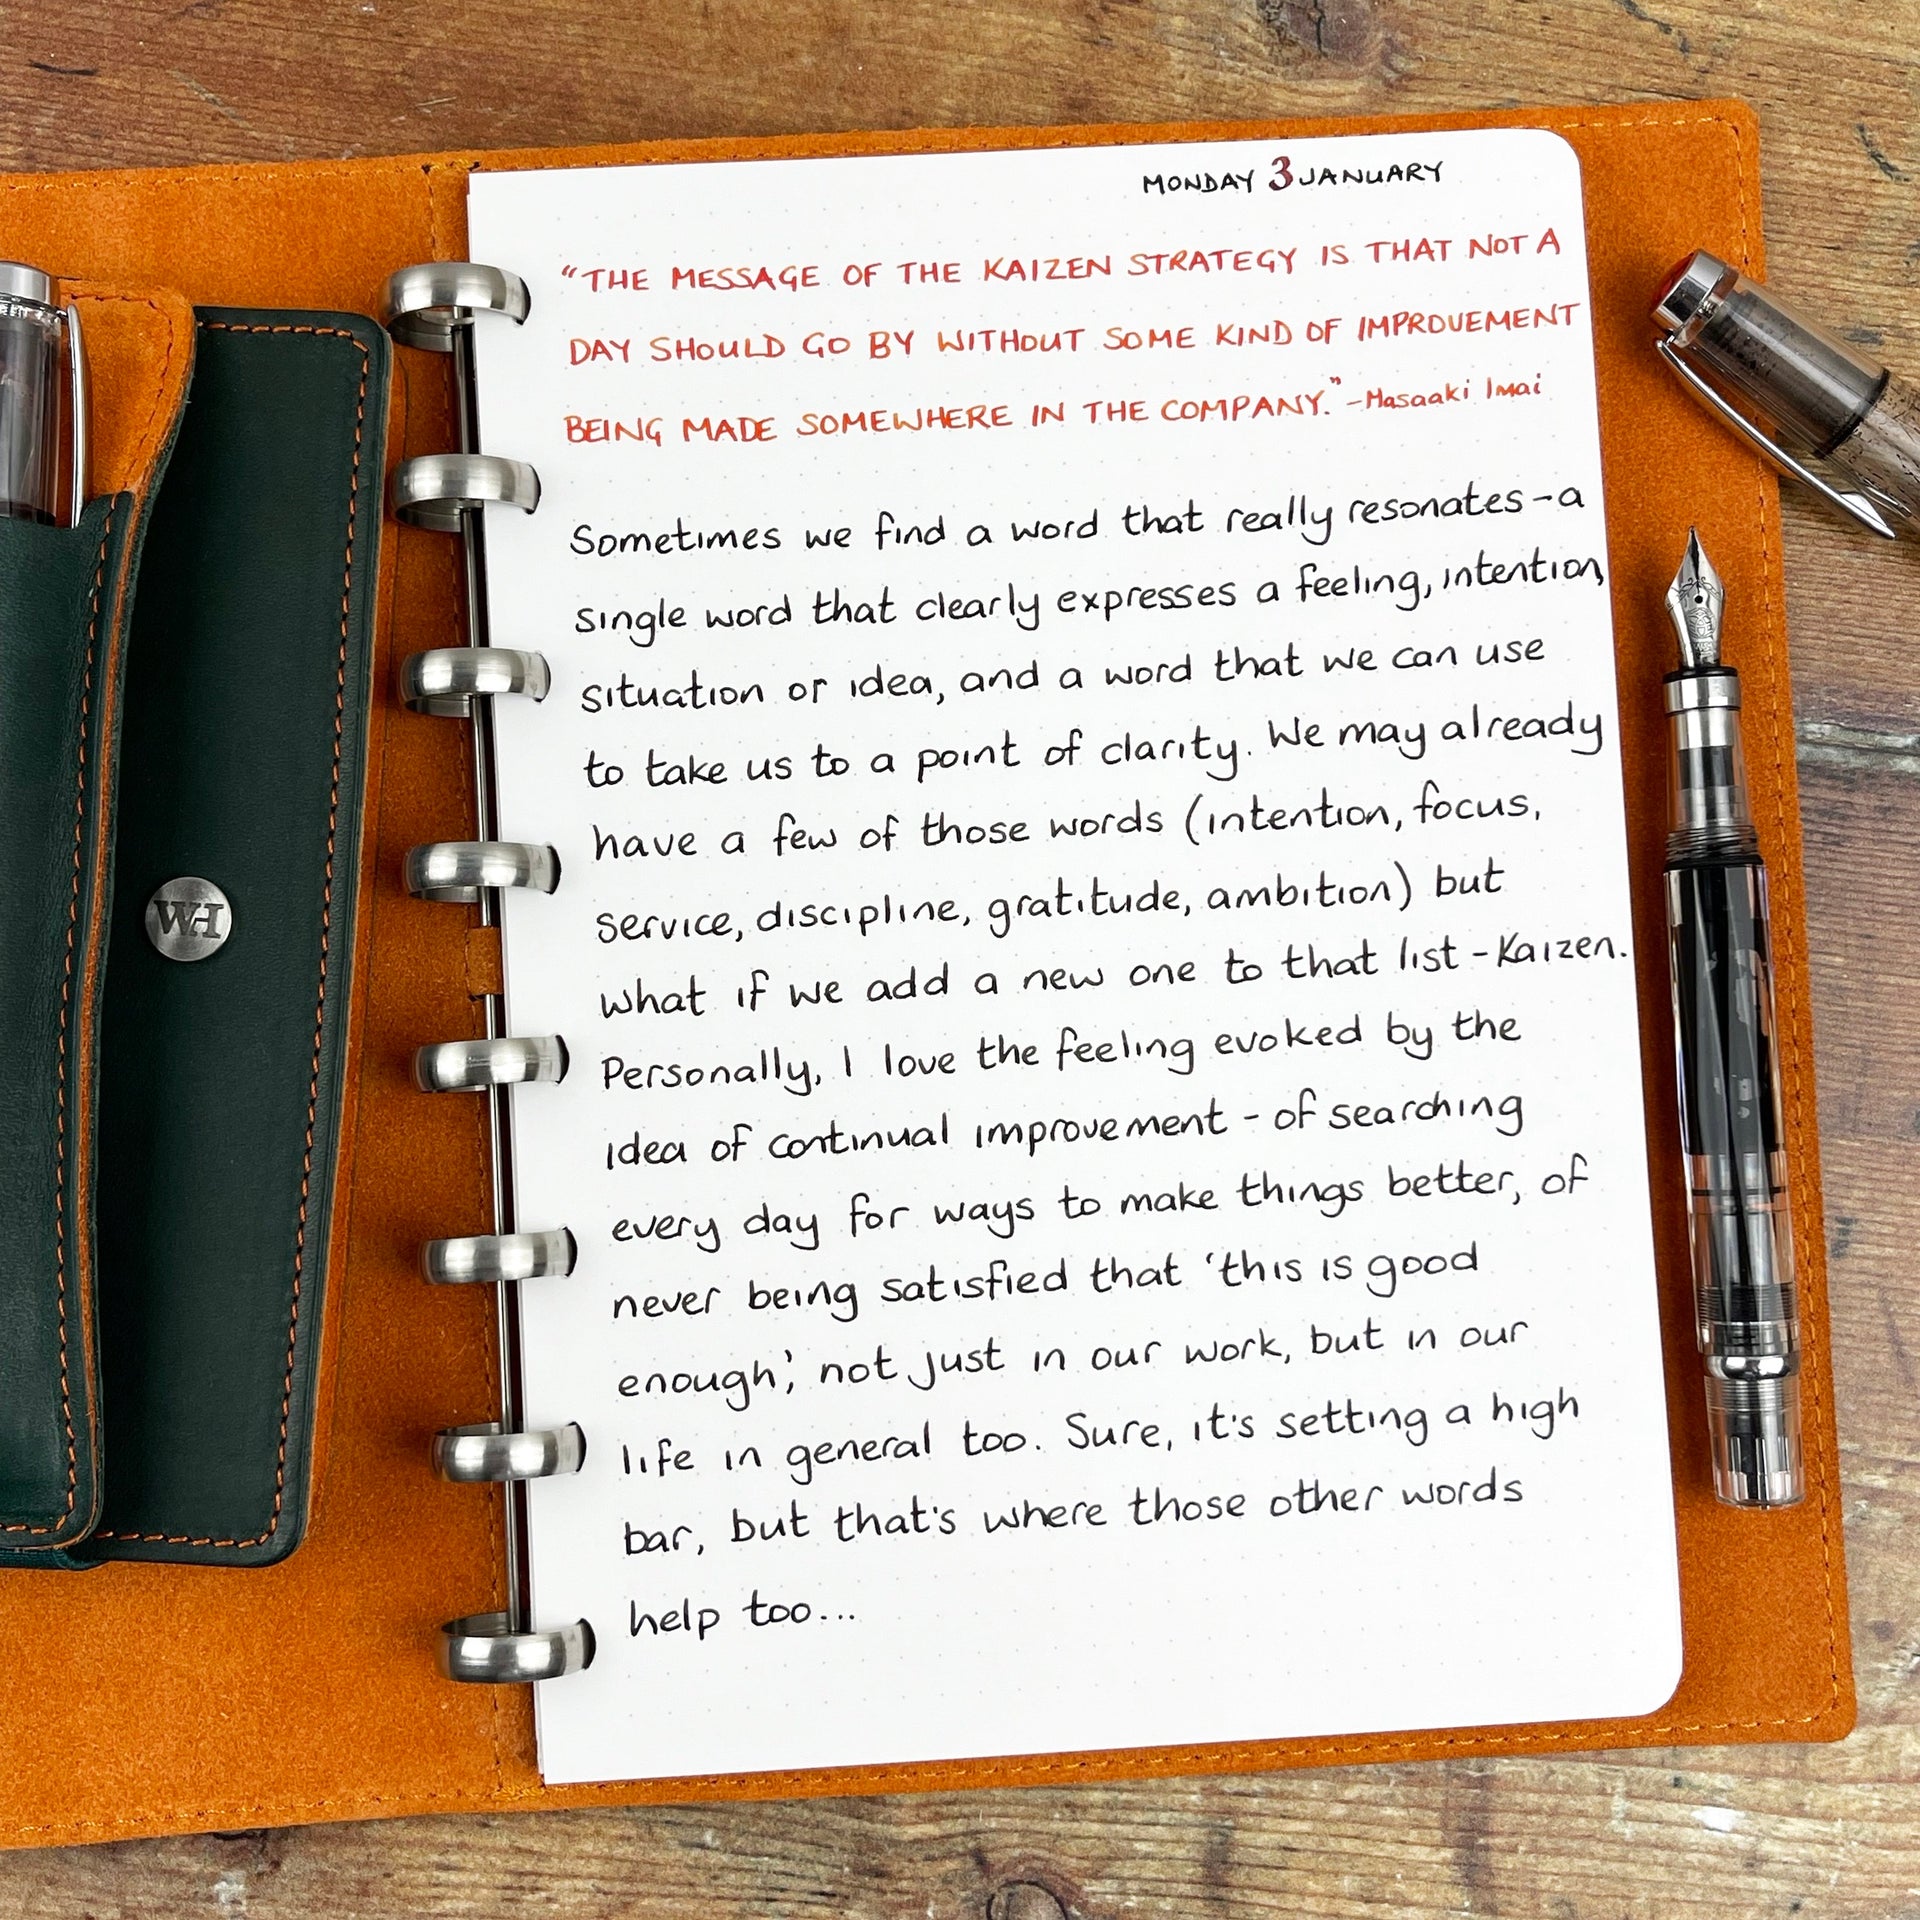 MONDAY 3 JANUARY
"THE MESSAGE OF THE KAIZEN STRATEGY IS THAT NOT A
DAY SHOULD GO BY WITHOUT SOME KIND OF IMPROVEMENT
BEING MADE SOMEWHERE IN THE COMPANY." - Masaaki Imai
Sometimes we find a word that really resonates - a
single word that clearly expresses a feeling, intention,
situation or idea, and a word that we can use
to take us to a point of clarity. We may already
have a few of those words (intention, focus,
service, discipline, gratitude, ambition) but
what if we add a new one to that list - Kaizen.
Personally, I love the feeling evoked by the
idea of continual improvement - of searching
every day for ways to make things better, of
never being satisfied that 'this is good
enough', not just in our work, but in our
life in general too. Sure, it's setting a high
bar, but that's where those other words
help too...
WH